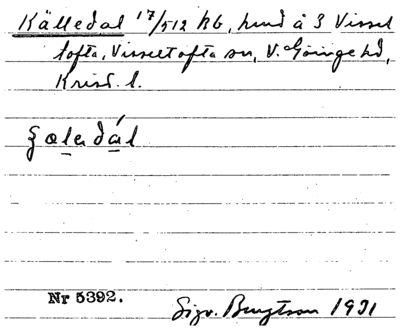 Källedal 17/512 kb, hmd å 3 Vissel
tofta, Visseltofta sn, V. Göinge hd,
Krist. l.
Nr 5392.
Sigv. Bengtson 1931